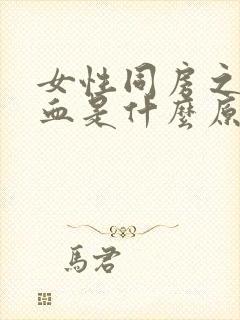 女性同房之
血是什麼原
馬君